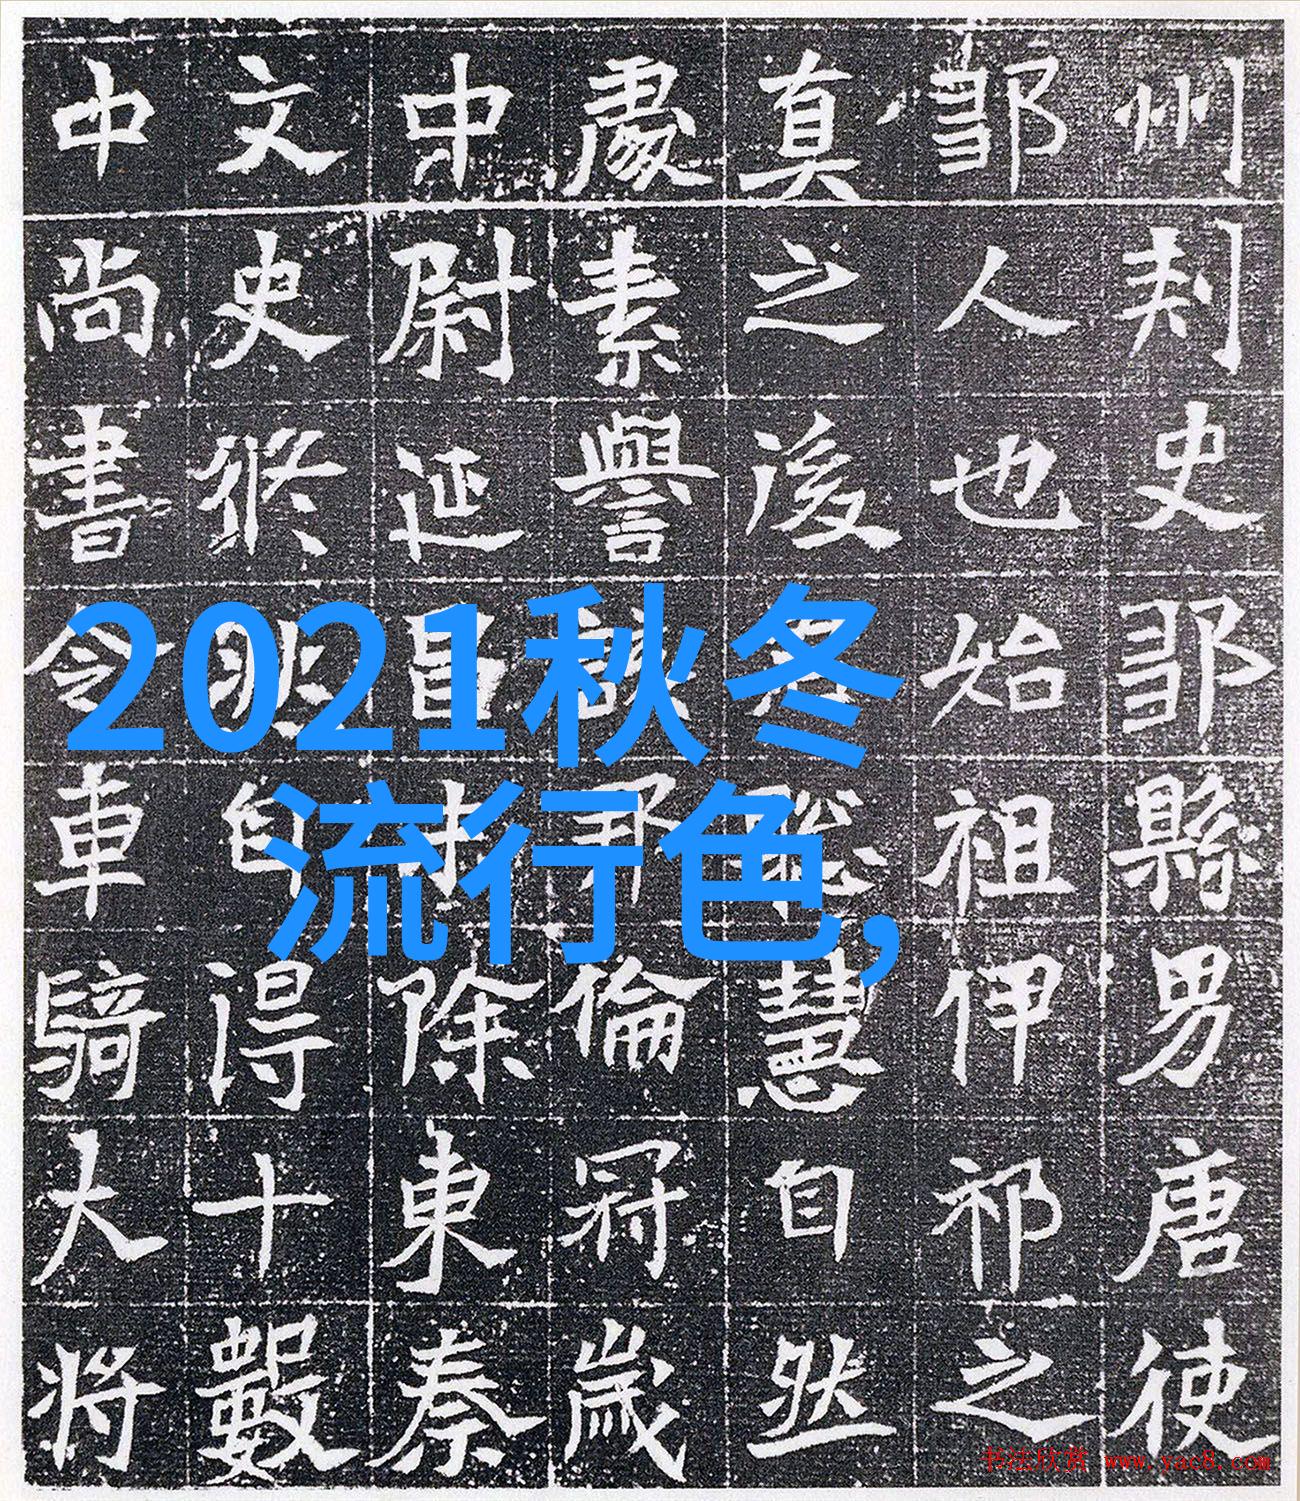 州刾史鄒縣男唐使
鄒人也始祖伊祁之
真之後聡慧自然
處素譽邦倫冠歲
中尉延昌除東秦
文史自得十數
中尚書令車騎大將
2021秋冬
流行色,
书法欣赏 www.yac8.com